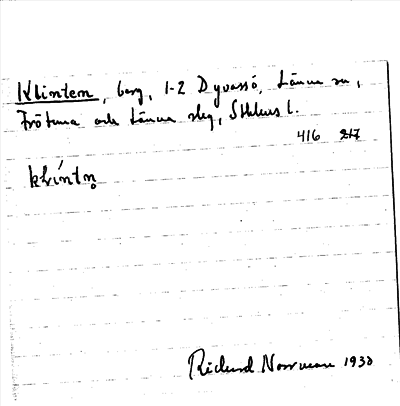 Klinten, berg, 1-2 Dyvassö, Länna sn,
Frötuna och Länna slg, Sthlms l.
416 217
klíntn̥
Rickard Norrman 1930